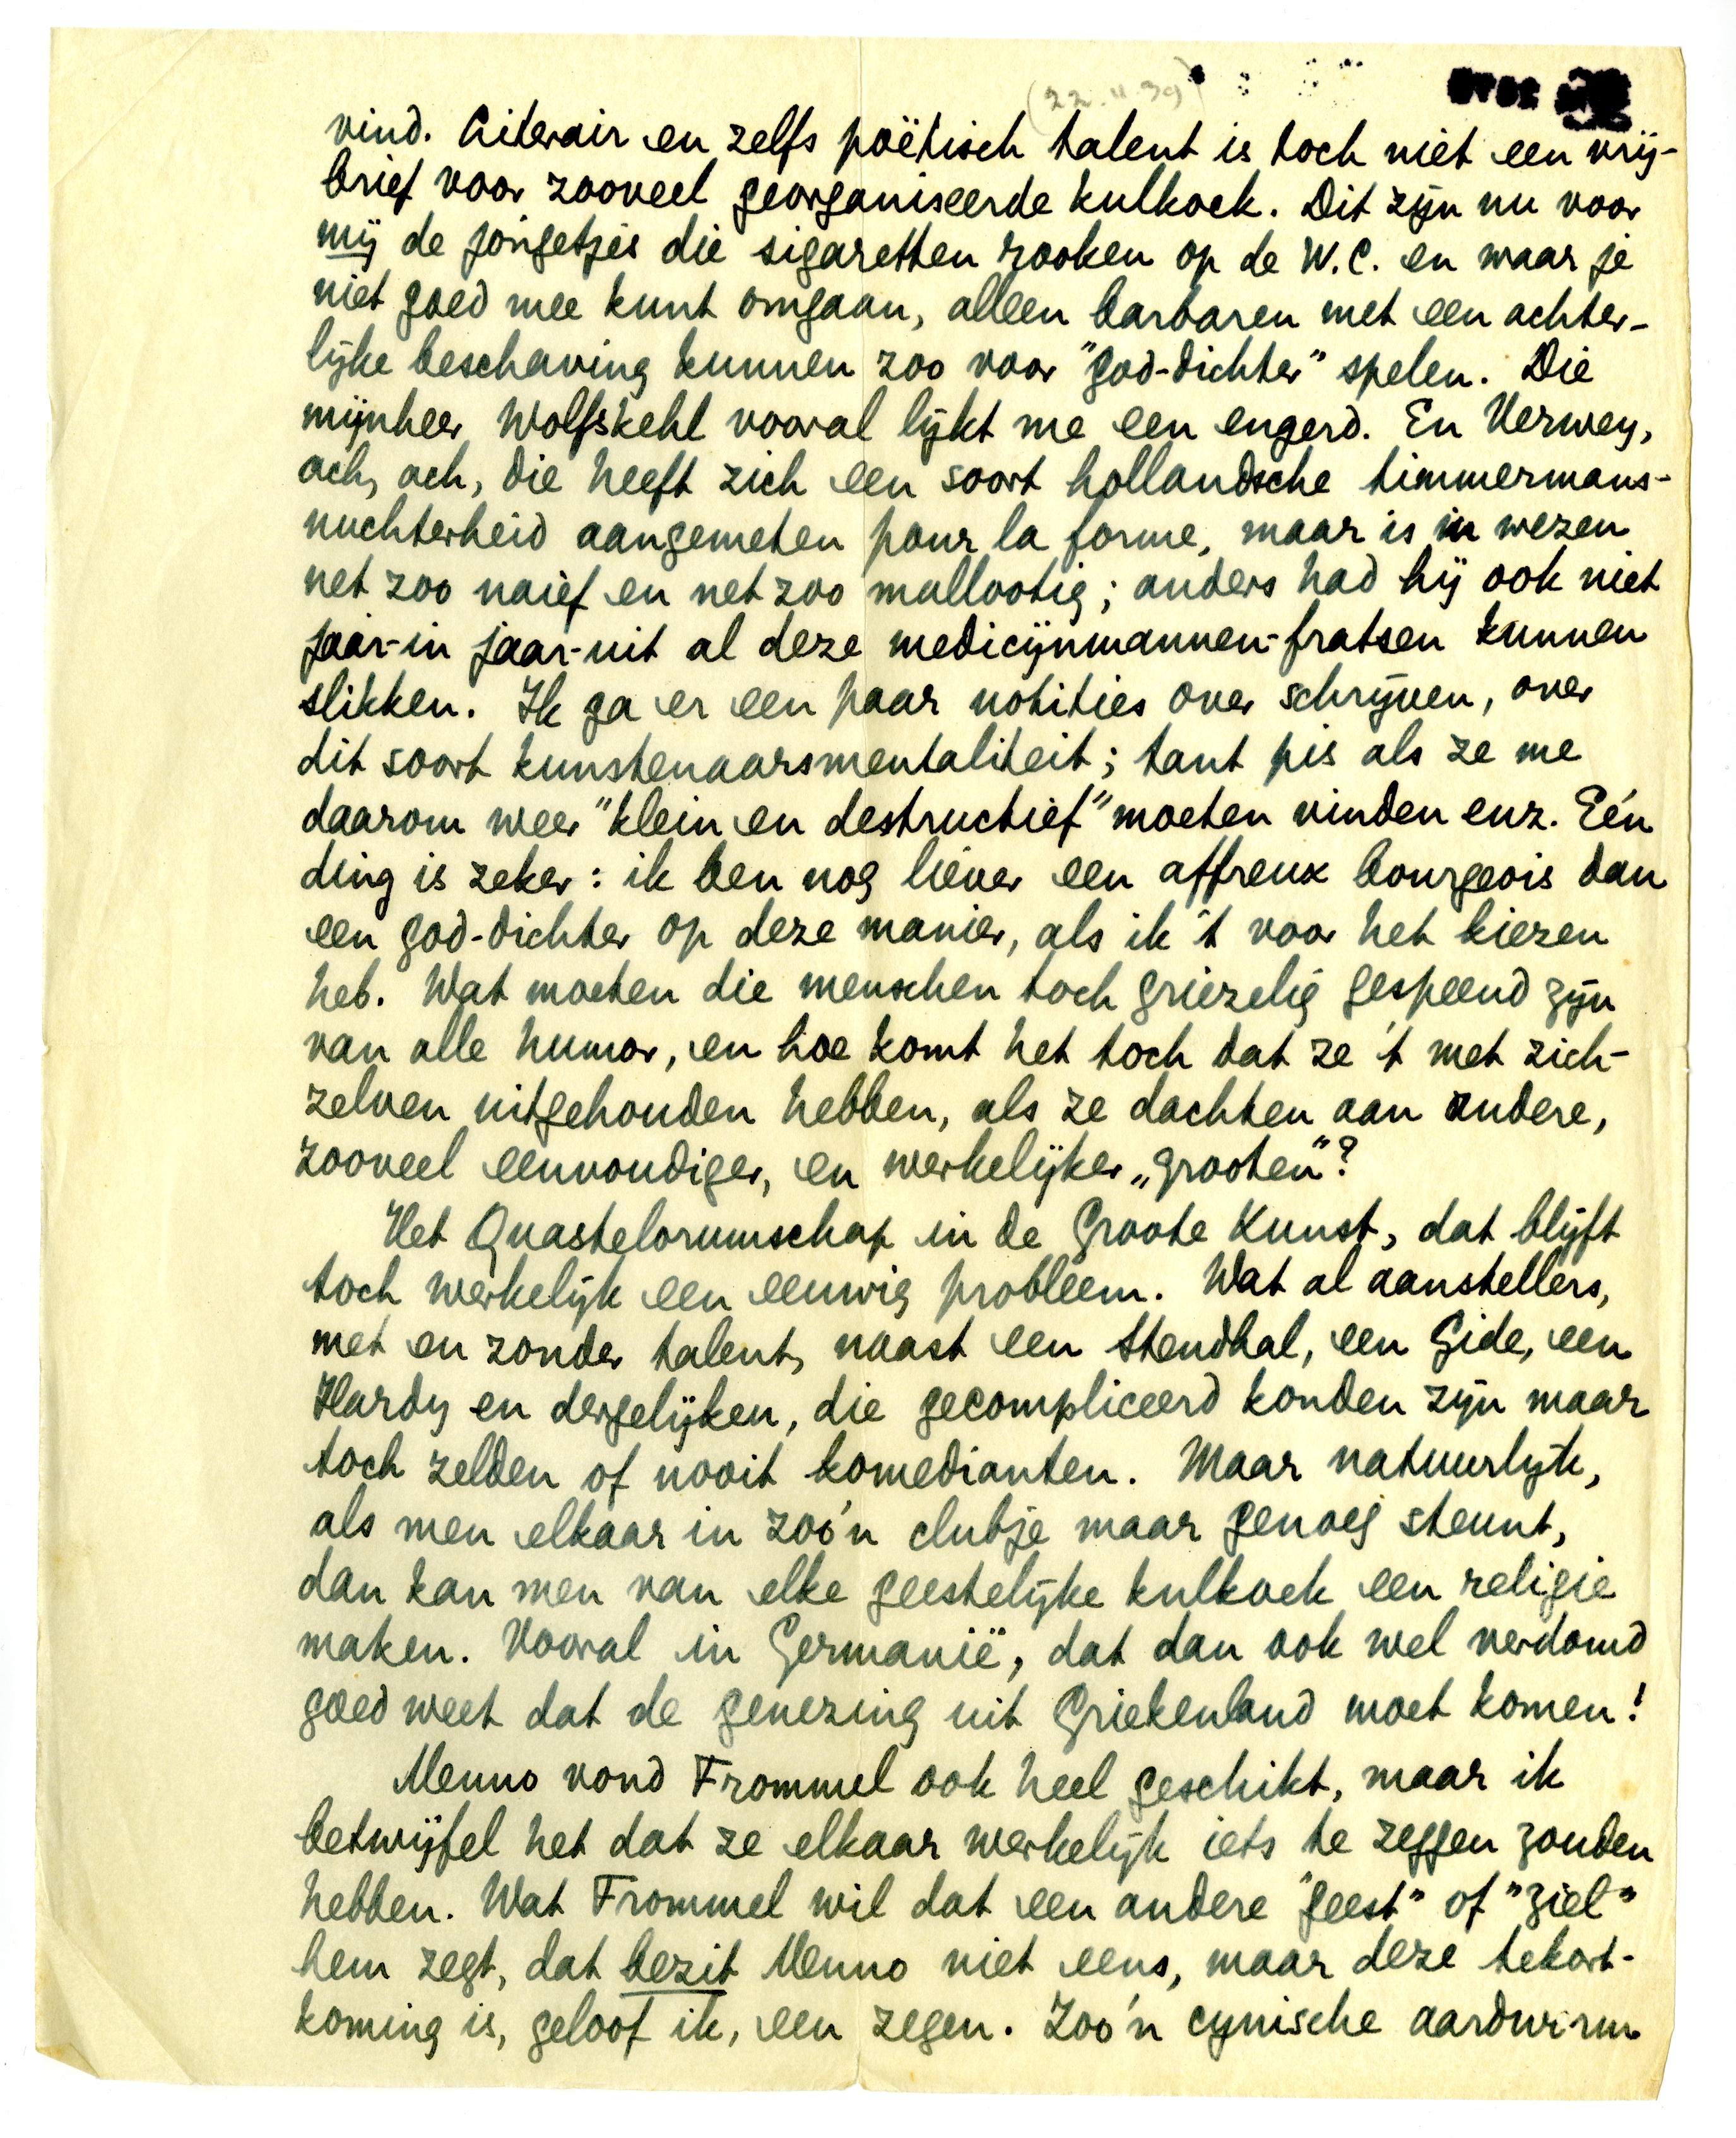 (22.11.39)
vind. Literair en zelfs poëtisch talent is toch niet een vrij-
brief voor zooveel georganiseerde kulkoek. Dit zijn nu voor
mij de jongetjes die sigaretten rooken op de W.C. en waar je
niet goed mee kunt omgaan, alleen barbaren met een achter-
lijke beschaving kunnen zoo voor "god-dichter" spelen. Die
mijnheer Wolfskehl vooral lijkt me een engerd. En Verwey,
ach, ach, die heeft zich een soort hollandsche timmermans-
nuchterheid aangemeten pour la forme, maar is in wezen
net zoo naief en net zoo mallootig; anders had hij ook niet
jaar-in jaar-uit al deze medicijnmannen-fratsen kunnen
slikken. Ik ga er een paar notities over schrijven, over
dit soort kunstenaarsmentaliteit; tant pis als ze me
daarom weer "klein en destructief" moeten vinden enz. Eén
ding is zeker: ik ben nog liever een affreux bourgeois dan
een god-dichter op deze manier, als ik 't voor het kiezen
heb. Wat moeten die menschen toch griezelig gespeend zijn
van alle humor, en hoe komt het toch dat ze 't met zich-
zelven uitgehouden hebben, als ze dachten aan andere,
zooveel eenvoudiger, en werkelijker „grooten"?
Het Quastelorumschap in de Groote Kunst, dat blijft
toch werkelijk een eeuwig probleem. Wat al aanstellers,
met en zonder talent, naast een Stendhal, een Gide, een
Hardy en dergelijken, die gecompliceerd konden zijn maar
toch zelden of nooit komedianten. Maar natuurlijk,
als men elkaar in zoo'n clubje maar genoeg steunt,
dan kan men van elke geestelijke kulkoek een religie
maken. Vooral in Germanië, dat dan ook wel verdomd
goed weet dat de genezing uit Griekenland moet komen!
Menno vond Frommel ook heel geschikt, maar ik
betwijfel het dat ze elkaar werkelijk iets te zeggen zouden
hebben. Wat Frommel wil dat een andere "geest" of "ziel"
hem zegt, dat bezit Menno niet eens, maar deze tekort-
koming is, geloof ik, een zegen. Zoo'n cynische aardwurm